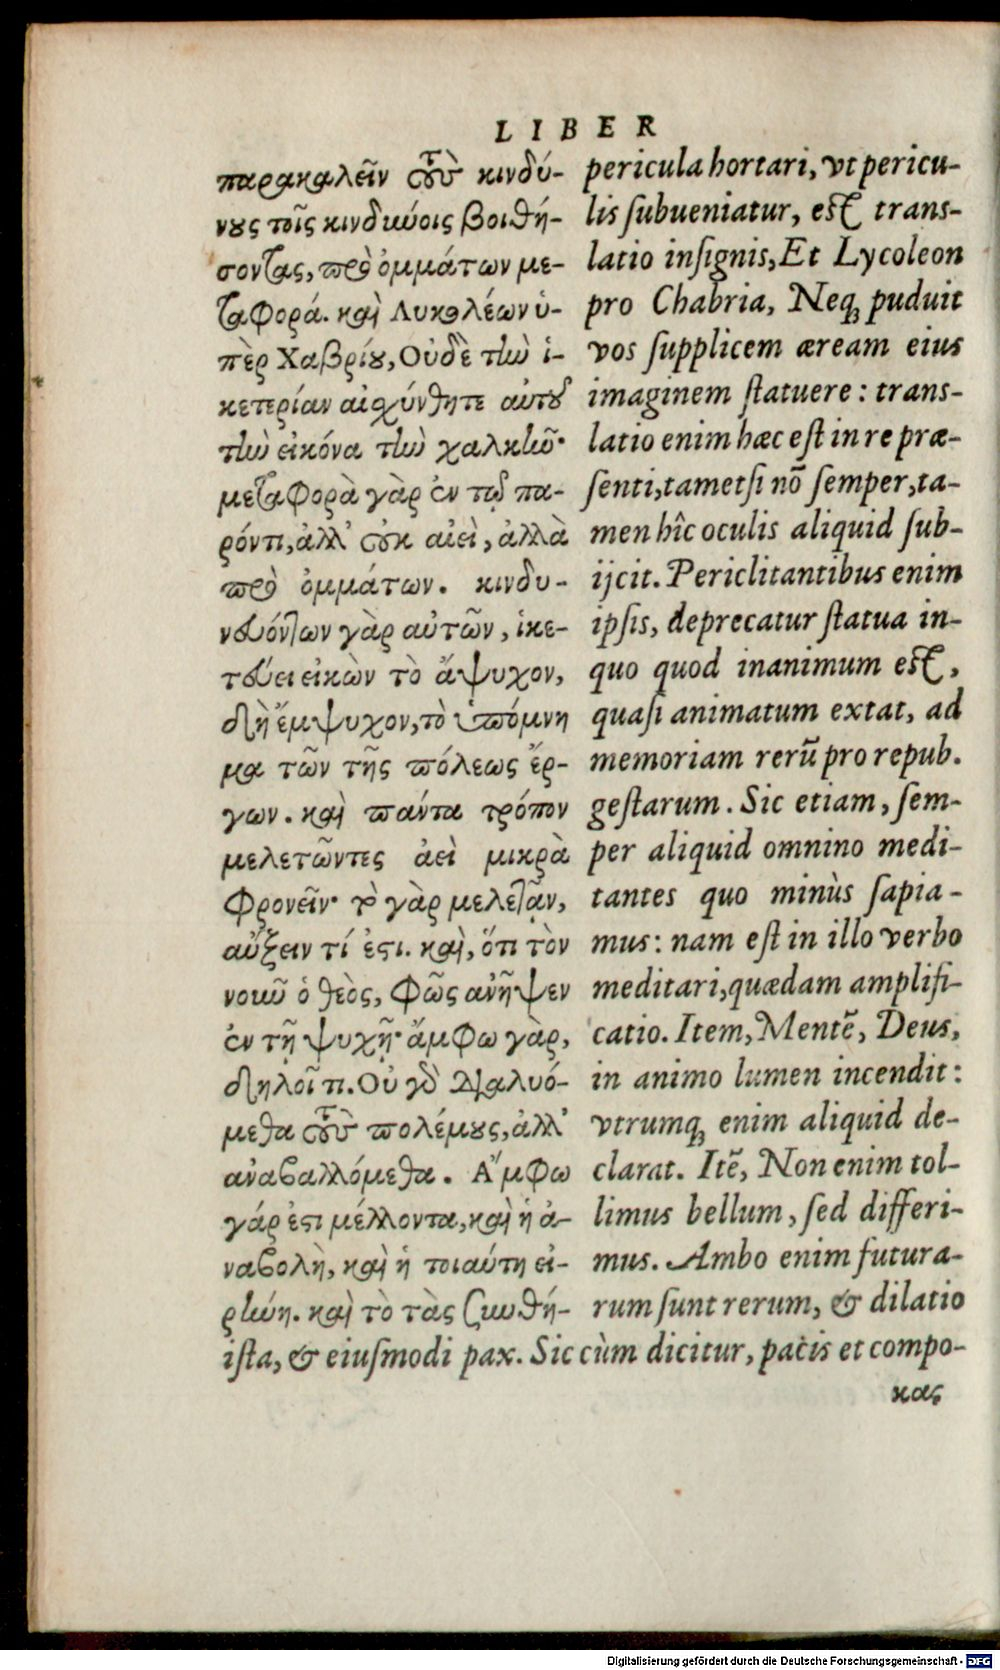 LIBER
παρακαλεῖν τοὺς κινδύ-
νους τοῖς κινδύνοις βοιθή-
σοντας, πρὸ ὀμμάτων με-
ταφορά. καὶ Λυκολέων ὑ-
πὲρ Χαβρίου, Οὐδὲ τὴν ἱ-
κετερίαν αἰσχύνθητε αὐτοῦ
τὴν εἰκόνα τὴν χαλκῆν·
μεταφορὰ γὰρ ἐν τῷ πα-
ρόντι, ἀλλ' οὐκ αἰεὶ, ἀλλὰ
πρὸ ὀμμάτων. κινδυ-
νευόντων γὰρ αὐτῶν, ἱκε-
τεύει εἰκὼν τὸ ἄψυχον,
δὴ ἔμψυχον, τὸ ὑπόμνη
μα τῶν τῆς πόλεως ἔρ-
γων. καὶ πάντα τρόπον
μελετῶντες ἀεὶ μικρὰ
φρονεῖν· τὸ γὰρ μελετᾶν,
αὔξειν τί ἐστι. καὶ, ὅτι τὸν
νοῦν ὁ θεὸς, φῶς ἀνῆψεν
ἐν τῇ ψυχῇ· ἄμφω γὰρ,
δηλοῖ τι. Οὐ γὰρ διαλυό-
μεθα τοὺς πολέμους, ἀλλ'
ἀναβαλλόμεθα. Ἄμφω
γάρ ἐστι μέλλοντα, καὶ ἡ ἀ-
ναβολὴ, καὶ ἡ τοιαύτη εἰ-
ρήνη. καὶ τὸ τὰς συνθή-
pericula hortari, vt pericu-
lis ſubueniatur, eſt trans-
latio inſignis, Et Lycoleon
pro Chabria, Neq; puduit
vos ſupplicem æream eius
imaginem ſtatuere: trans-
latio enim hæc eſt in re præ-
ſenti, tametſi nō ſemper, ta-
men hîc oculis aliquid ſub-
ijcit. Periclitantibus enim
ipſis, deprecatur ſtatua in-
quo quod inanimum eſt,
quaſi animatum extat, ad
memoriam rerū pro repub.
geſtarum. Sic etiam, ſem-
per aliquid omnino medi-
tantes quo minùs ſapia-
mus: nam eſt in illo verbo
meditari, quædam amplifi-
catio. Item, Mentē, Deus,
in animo lumen incendit:
vtrumq; enim aliquid de-
clarat. Itē, Non enim tol-
limus bellum, ſed differi-
mus. Ambo enim futura-
rum ſunt rerum, & dilatio
iſta, & eiuſmodi pax. Sic cùm dicitur, pacis et compo-
κας
Digitalisierung gefördert durch die Deutsche Forschungsgemeinschaft - DFG